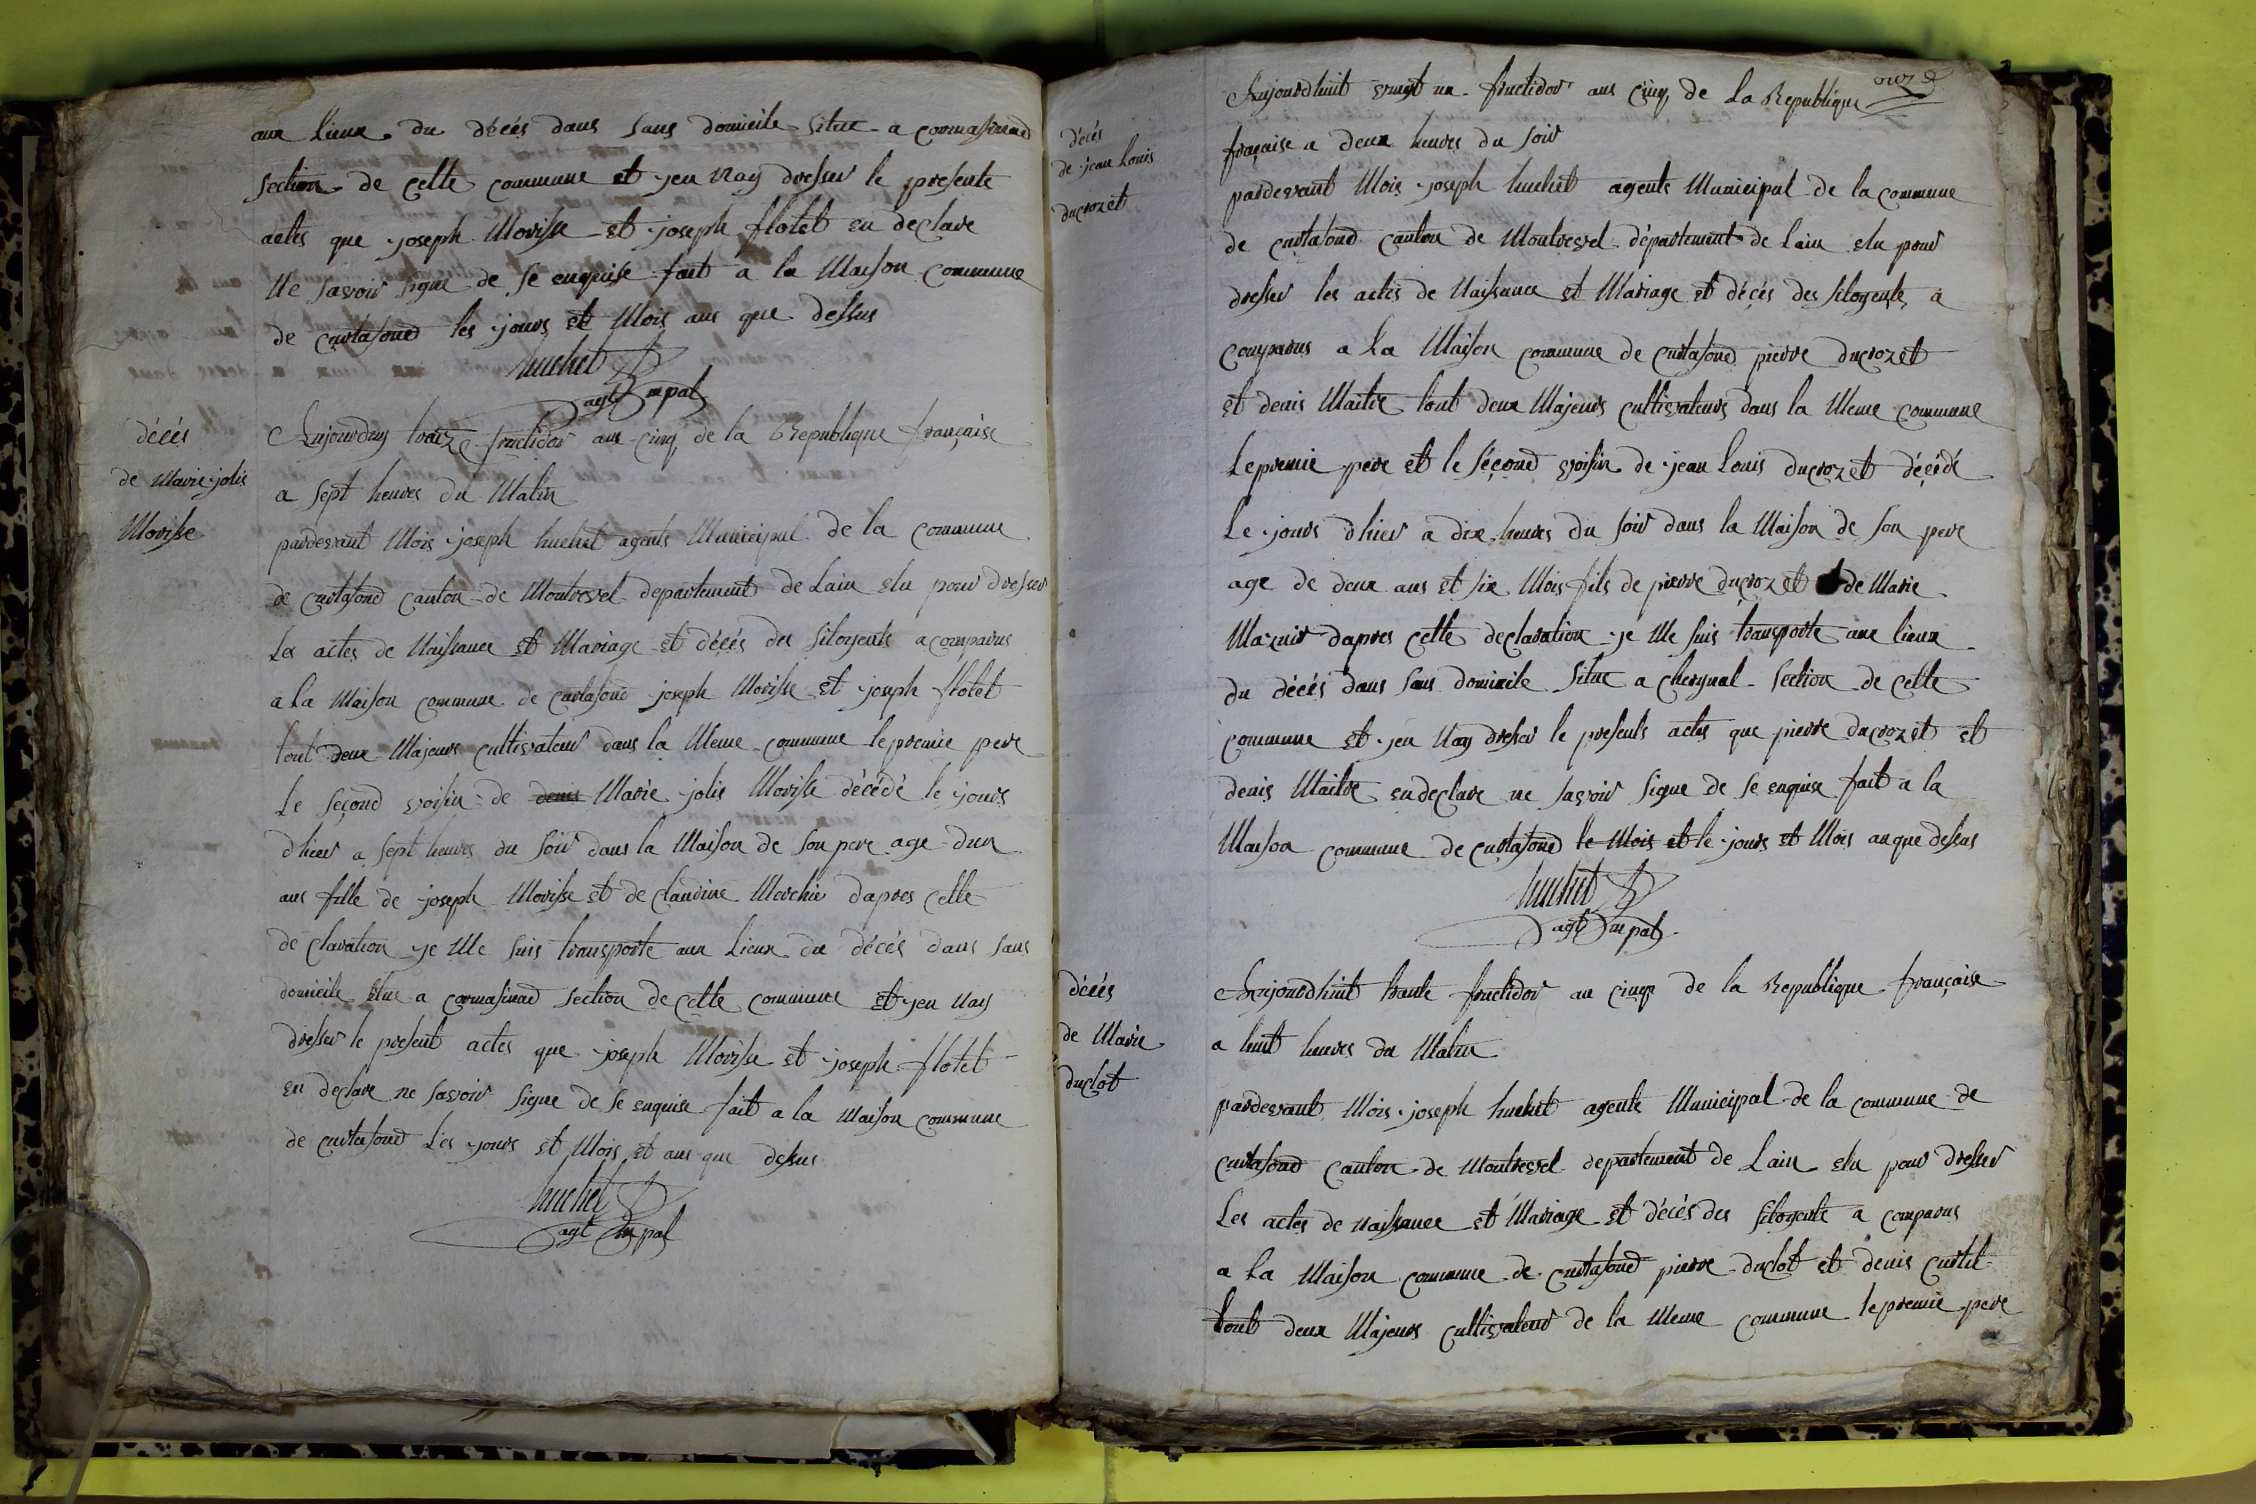 aux lieux du décés dans sans domicile situe a cormasinad
section de cette commune et jen nay dresser le presente
actes que joseph Morisse et joseph flotet en declare
Ne savoir signe de se enquise fait a la Maison commune
de curtafond les jours et Mois ans que dessus
huchet
agt mpal
décés
de Marie jolis
Morisse
Aujourduy traize fructidor ans cinq de la Republique française
a sept heures du Matin
pardevant Mois joseph huchet agents Municipal de la commune
de curtafond canton de Montrevel departement de Lain elu pour dresser
Les actes de Naissance et Mariage et décés des sitoyents a comparus
a la Maison commune de curtafond joseph Morisse et joseph flotet
tout deux Majeurs cultivateur dans la Meme commune le premie pere
Le second voisin de denis Marie jolis Morisse décédé le jours
dhier a sept heures du soir dans la Maison de son pere age dun
ans fille de joseph Morisse et de claudine Morchie dapres cette
de claration je Me suis transporte aux Lieux du décés dans sans
domicile situe a cormasinad section de cette commune et jen nay
dresser le present actes que joseph Morisse et joseph flotet
en declare ne savoir signe de se enquise fait a la Maison commune
de curtafond Les jours et Mois et ans que dessus
huchet
agt mpal
onze
décés
de jean Louis
ducrozet
Aujourdhuit vingt un fructidor ans cinq de La Republique
française a deux heures du soir
pardevant Mois joseph huchet agents Municipal de la commune
de curtafond canton de Montrevel département de lain elu pour
dresser les actes de Naissance et Mariage et décés des sitoyents a
comparus a la Maison commune de curtafond pierre ducrozet
et denis Maitre tout deux Majeurs cultivateurs dans la Meme commune
Le premie pere et le second voisin de jean Louis ducrozet décédé
Le jours dhier a dix heures du soir dans la Maison de son pere
age de deux ans et six Mois fils de pierre ducrozet de Marie
Mazuir dapres cette declaration je Me suis transporte aux lieux
du décés dans sans domicile situe a cheeynal section de cette
commune et jen nay dresser le presents actes que pierre ducrozet et
denis Maitre en declare ne savoir signe de se enquise fait a la
Maison commune de curtafond le Mois et le jours et Mois an que dessus
huchet
agt mpal
décés
de Marie
duclot
Aujourdhuit trante fructidor an cinq de la Republique française
a huit heures du Matin
pardevant Mois joseph huchet agents Municipal de la commune de
curtafond canton de Montrevel departement de Lain elu pour dresser
Les actes de naissance et Mariage et décés des sitoyents a comparus
a La Maison commune de curtafond pierre duclot et denis curtil
tout deux Majeurs cultivateur de la Meme commune le premie pere